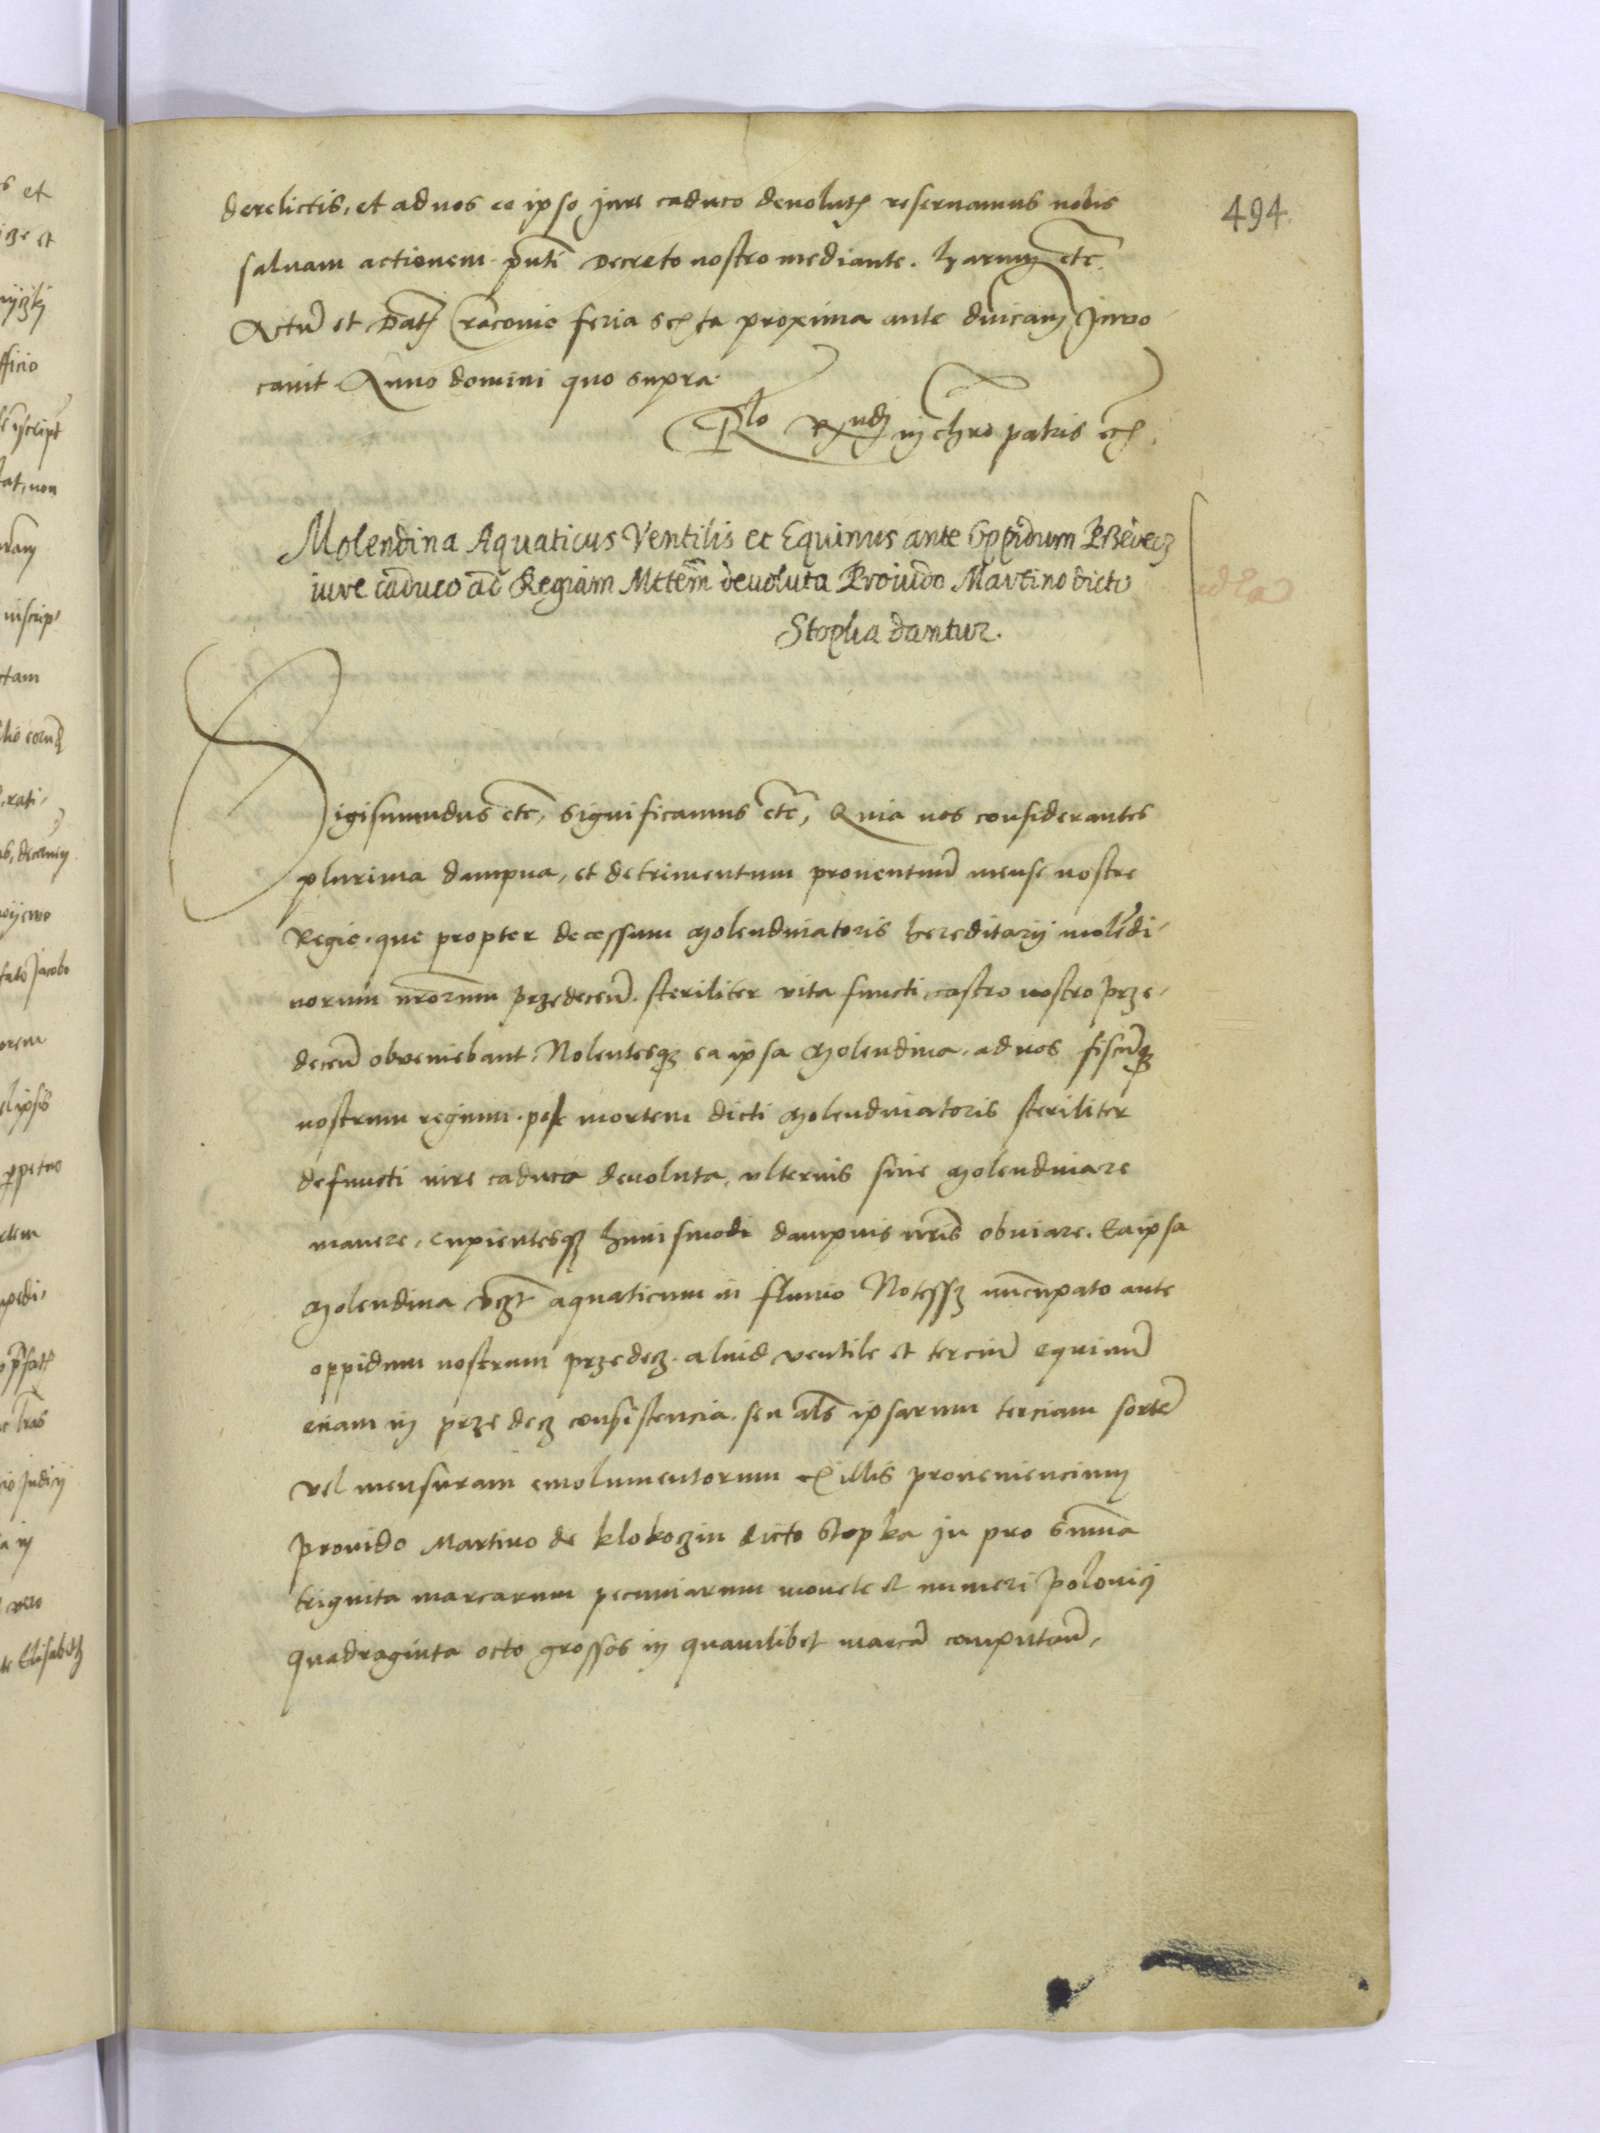 494
derelictis, et ad nos eo ipso jure caduco devolut reservamus nobis
salvam actionem pnti Decreto nostro mediante. harum etc
Actu et Dat Cracovie feria sexta proxima ante dnicam Invo-
cavit Anno domini quo supra
Rlo Rndi in chro patris etc
Molendina Aquaticus Ventilis et Equinus ante Oppidum Przedecz
iure caduco ad Regiam Mttem devoluta Provido Martino dicto
Stopka dantur.
Sigismundus etc, significamus etc, Quia nos considerantes
plurima dampna, et detrimentum proventuu mense nostre
Regie, que propter decessum molendinatoris hereditarij moledi-
norum nrorum przedecen. steriliter vita functi, castro nostro prze-
decen obveniebant. Nolentesqz ea ipsa molendina, ad nos fiscuqz
nostrum regium, post mortem dicti molendinatoris steriliter
defuncti iure caduco devoluta, ulterius sine molendinare
manere, cupientesqz huiusmodi dampnis nris obviare. Ea ipsa
molendina vczt aquaticum in fluvio Notessz nucupato ante
oppidum nostrum przedecz. aliud ventile et terciu equinu
eciam in przedecz consistencia. seu als ipsarum terciam sorte
vel mensuram emolumentorum ex illis proveniencium
provido Martino de klokoczin dicto Stopka in pro suma
triginta marcarum pecuniarum monete et numeri polonici
quadraginta octo grossos in quamlibet marca computan,